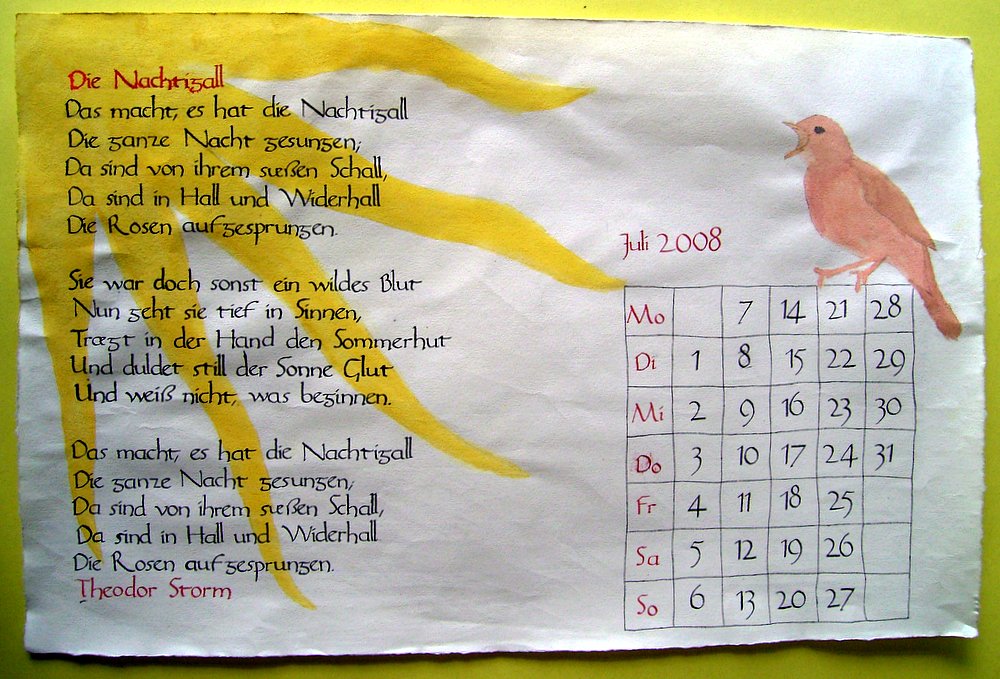 Die Nachtigall
Das macht, es hat die Nachtigall
Die ganze Nacht gesungen;
Da sind von ihrem sueßen Schall,
Da sind in Hall und Widerhall
Die Rosen aufgesprungen.
Sie war doch sonst ein wildes Blut
Nun geht sie tief in Sinnen,
Traegt in der Hand den Sommerhut
Und duldet still der Sonne Glut
Und weiß nicht, was beginnen.
Das macht, es hat die Nachtigall
Die ganze Nacht gesungen;
Da sind von ihrem sueßen Schall,
Da sind in Hall und Widerhall
Die Rosen aufgesprungen.
Theodor Storm
Juli 2008
Mo 7 14 21 28
Di 1 8 15 22 29
Mi 2 9 16 23 30
Do 3 10 17 24 31
Fr 4 11 18 25
Sa 5 12 19 26
So 6 13 20 27